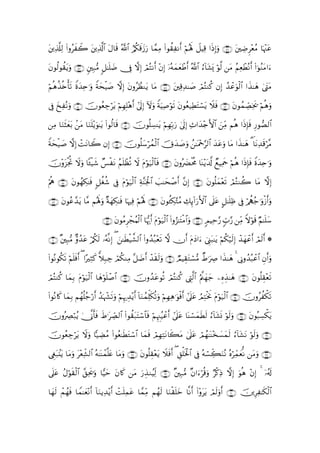 عَنْهَا مُعْرِضِينَ ۝ وَإِذَا قِيلَ لَهُمْ أَنفِقُوا۟ مِمَّا رَزَقَكُمُ ٱللَّهُ قَالَ ٱلَّذِينَ كَفَرُوا۟ لِلَّذِينَ
ءَامَنُوٓا۟ أَنُطْعِمُ مَن لَّوْ يَشَآءُ ٱللَّهُ أَطْعَمَهُۥٓ إِنْ أَنتُمْ إِلَّا فِى ضَلَٰلٍ مُّبِينٍ ۝ وَيَقُولُونَ
مَتَىٰ هَٰذَا ٱلْوَعْدُ إِن كُنتُمْ صَٰدِقِينَ ۝ مَا يَنظُرُونَ إِلَّا صَيْحَةً وَٰحِدَةً تَأْخُذُهُمْ
وَهُمْ يَخِصِّمُونَ ۝ فَلَا يَسْتَطِيعُونَ تَوْصِيَةً وَلَآ إِلَىٰٓ أَهْلِهِمْ يَرْجِعُونَ ۝ وَنُفِخَ فِى
ٱلصُّورِ فَإِذَا هُم مِّنَ ٱلْأَجْدَاثِ إِلَىٰ رَبِّهِمْ يَنسِلُونَ ۝ قَالُوا۟ يَٰوَيْلَنَا مَنۢ بَعَثَنَا مِن
مَّرْقَدِنَا هَٰذَا مَا وَعَدَ ٱلرَّحْمَٰنُ وَصَدَقَ ٱلْمُرْسَلُونَ ۝ إِن كَانَتْ إِلَّا صَيْحَةً
وَٰحِدَةً فَإِذَا هُمْ جَمِيعٌ لَّدَيْنَا مُحْضَرُونَ ۝ فَٱلْيَوْمَ لَا تُظْلَمُ نَفْسٌ شَيْـًٔا وَلَا تُجْزَوْنَ
إِلَّا مَا كُنتُمْ تَعْمَلُونَ ۝ إِنَّ أَصْحَٰبَ ٱلْجَنَّةِ ٱلْيَوْمَ فِى شُغُلٍ فَٰكِهُونَ ۝ هُمْ
وَأَزْوَٰجُهُمْ فِى ظِلَٰلٍ عَلَى ٱلْأَرَآئِكِ مُتَّكِـُٔونَ ۝ لَهُمْ فِيهَا فَٰكِهَةٌ وَلَهُم مَّا يَدَّعُونَ ۝
سَلَٰمٌ قَوْلًا مِّن رَّبٍّ رَّحِيمٍ ۝ وَٱمْتَٰزُوا۟ ٱلْيَوْمَ أَيُّهَا ٱلْمُجْرِمُونَ ۝
۞ أَلَمْ أَعْهَدْ إِلَيْكُمْ يَٰبَنِىٓ ءَادَمَ أَن لَّا تَعْبُدُوا۟ ٱلشَّيْطَٰنَ إِنَّهُۥ لَكُمْ عَدُوٌّ مُّبِينٌ ۝
وَأَنِ ٱعْبُدُونِى هَٰذَا صِرَٰطٌ مُّسْتَقِيمٌ ۝ وَلَقَدْ أَضَلَّ مِنكُمْ جِبِلًّا كَثِيرًا أَفَلَمْ تَكُونُوا۟
تَعْقِلُونَ ۝ هَٰذِهِۦ جَهَنَّمُ ٱلَّتِى كُنتُمْ تُوعَدُونَ ۝ ٱصْلَوْهَا ٱلْيَوْمَ بِمَا كُنتُمْ
تَكْفُرُونَ ۝ ٱلْيَوْمَ نَخْتِمُ عَلَىٰٓ أَفْوَٰهِهِمْ وَتُكَلِّمُنَآ أَيْدِيهِمْ وَتَشْهَدُ أَرْجُلُهُم بِمَا كَانُوا۟
يَكْسِبُونَ ۝ وَلَوْ نَشَآءُ لَطَمَسْنَا عَلَىٰٓ أَعْيُنِهِمْ فَٱسْتَبَقُوا۟ ٱلصِّرَٰطَ فَأَنَّىٰ يُبْصِرُونَ
۝ وَلَوْ نَشَآءُ لَمَسَخْنَٰهُمْ عَلَىٰ مَكَانَتِهِمْ فَمَا ٱسْتَطَٰعُوا۟ مُضِيًّا وَلَا يَرْجِعُونَ
۝ وَمَن نُّعَمِّرْهُ نُنَكِّسْهُ فِى ٱلْخَلْقِ أَفَلَا يَعْقِلُونَ ۝ وَمَا عَلَّمْنَٰهُ ٱلشِّعْرَ وَمَا يَنۢبَغِى
لَهُۥٓ إِنْ هُوَ إِلَّا ذِكْرٌ وَقُرْءَانٌ مُّبِينٌ ۝ لِّيُنذِرَ مَن كَانَ حَيًّا وَيَحِقَّ ٱلْقَوْلُ عَلَى
ٱلْكَٰفِرِينَ ۝ أَوَلَمْ يَرَوْا۟ أَنَّا خَلَقْنَا لَهُم مِّمَّا عَمِلَتْ أَيْدِينَآ أَنْعَٰمًا فَهُمْ لَهَا